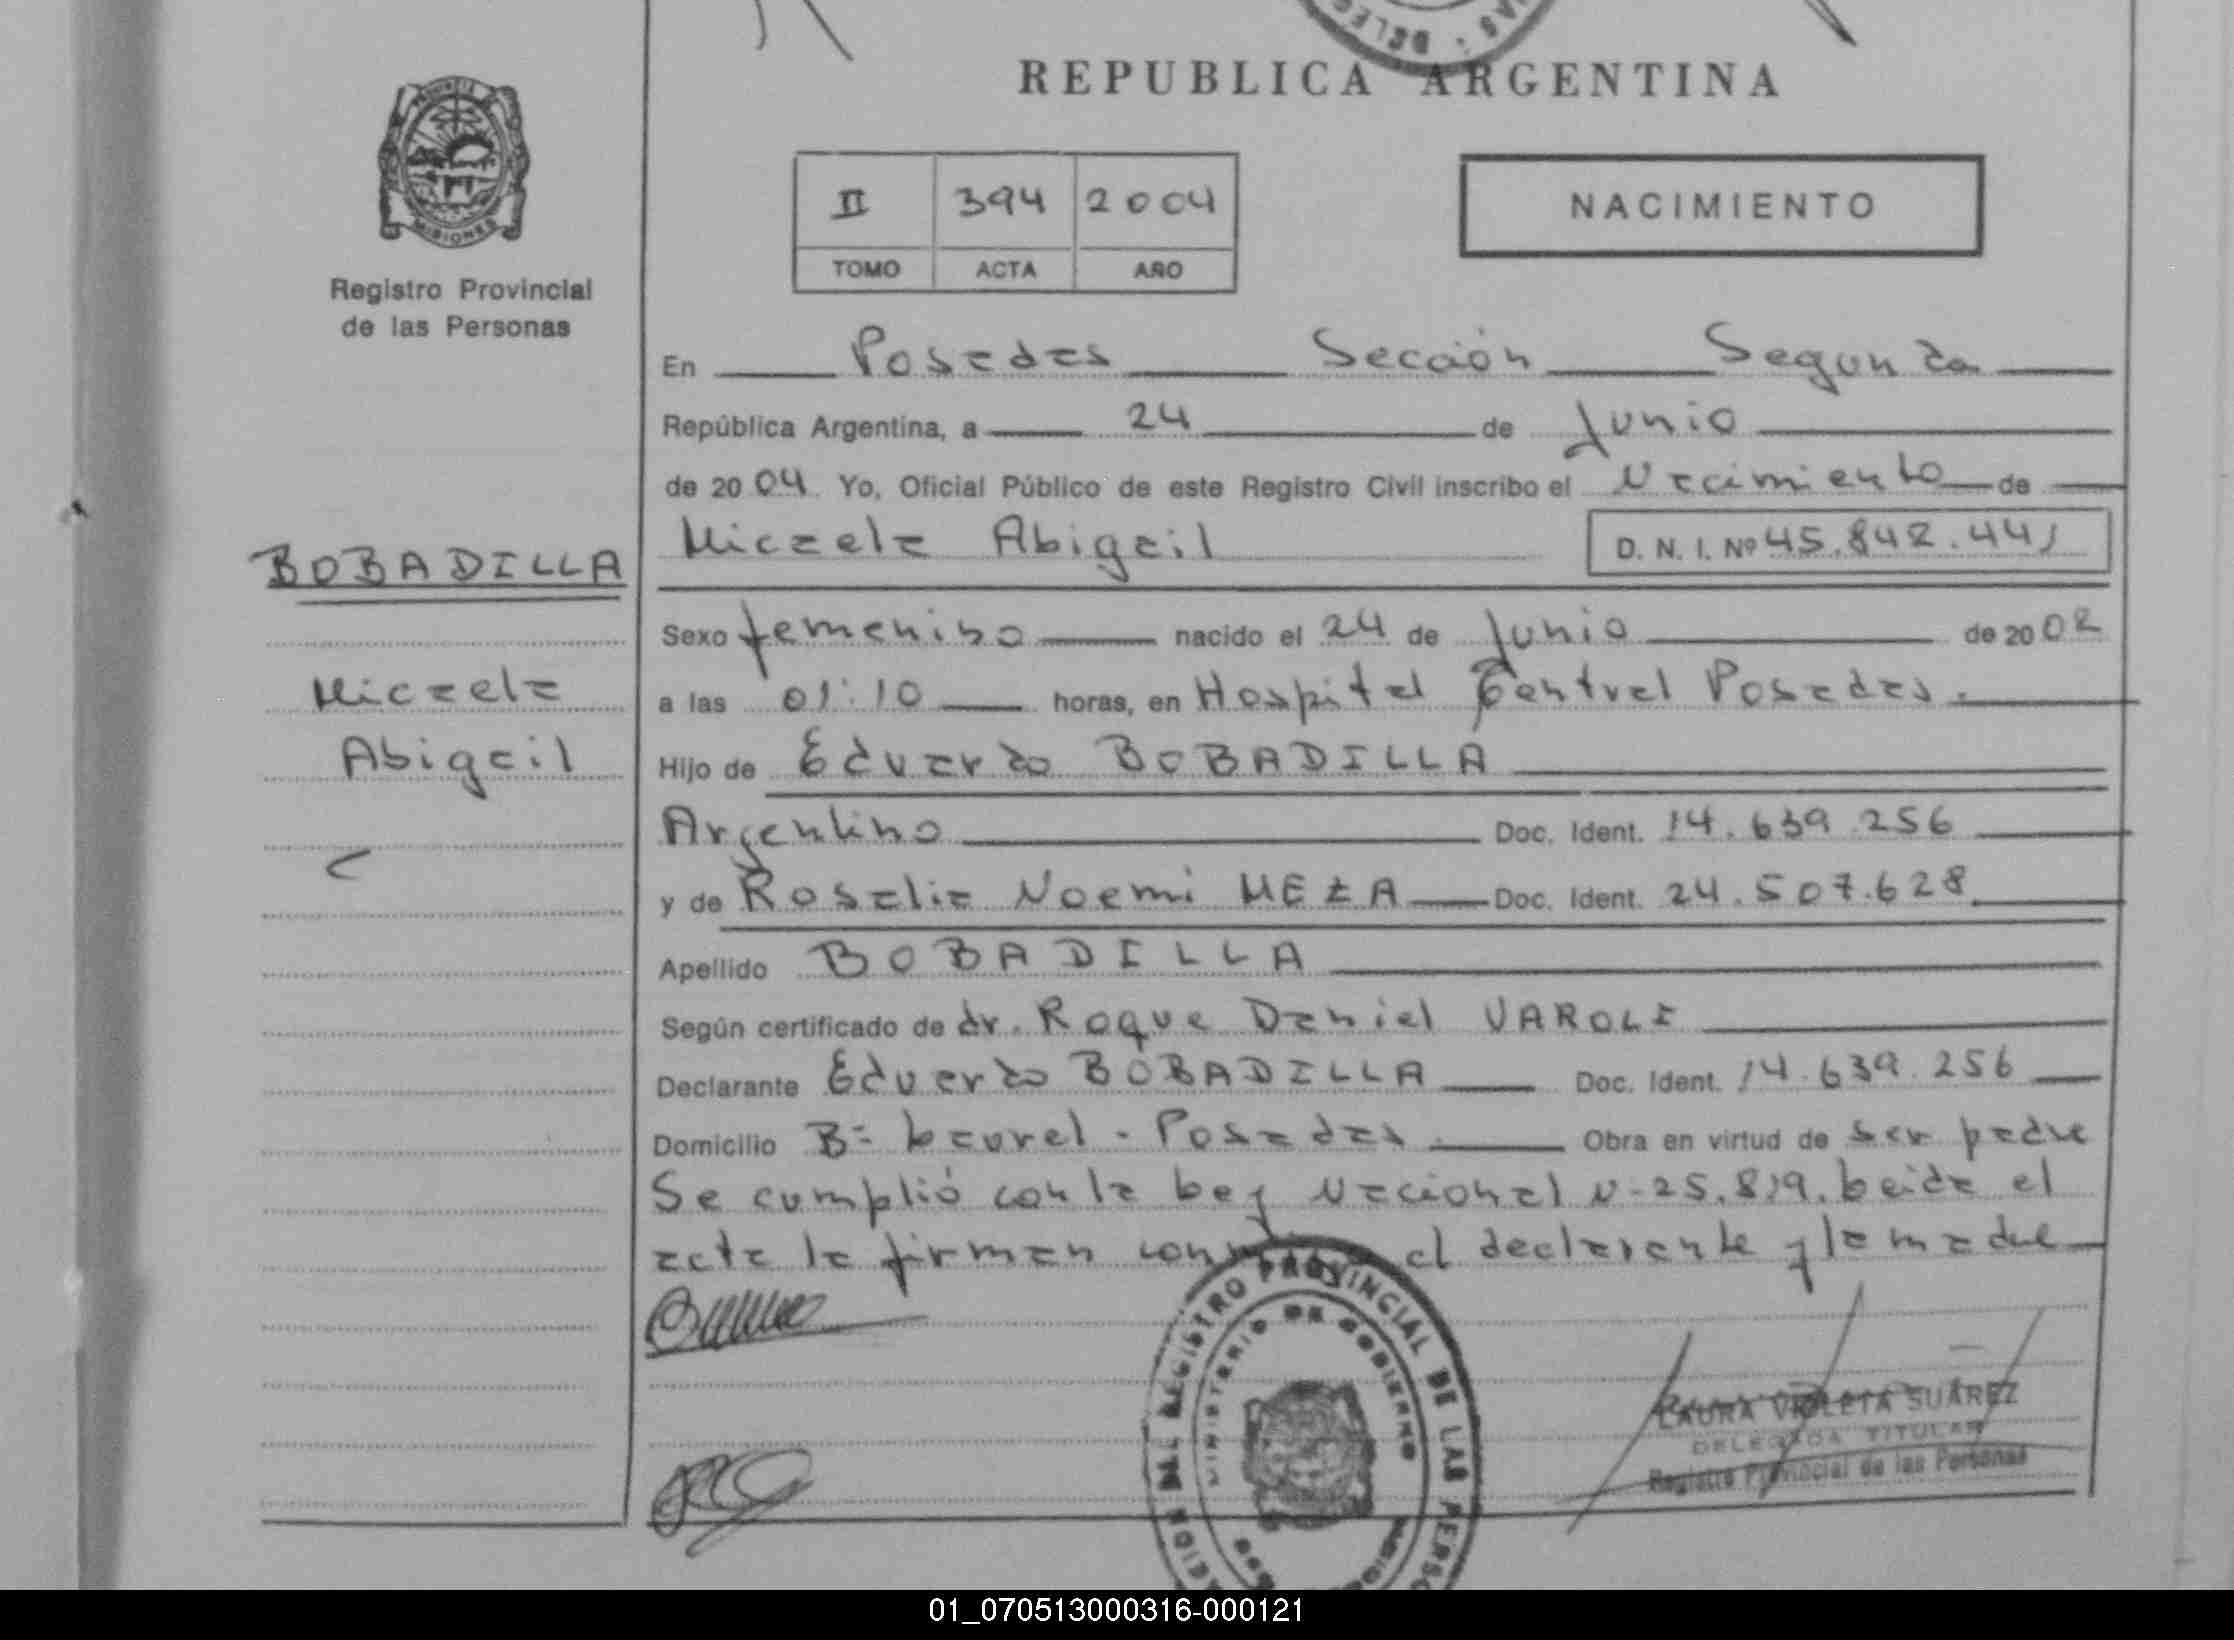 DELEG
REPUBLICA ARGENTINA
II 394 2004
TOMO ACTA AÑO
NACIMIENTO
MISIONES
Registro Provincial
de las Personas
En Posadas Sección Segunda
República Argentina, a 24 de Junio
de 2004 Yo, Oficial Público de este Registro Civil inscribo el Nacimiento de
BOBADILLA
Micaela Abigail D. N. I. Nº 45.842.441
Sexo femenino nacido el 24 de Junio de 2002
Micaela
a las 01:10 horas, en Hospital Central Posadas.
Abigail
Hijo de Eduardo BOBADILLA
Argentino Doc. Ident. 14.639.256
y de Rosalia Noemi MEZA Doc. Ident. 24.507.628
Apellido BOBADILLA
Según certificado de dr. Roque Daniel VAROLI
Declarante Eduardo BOBADILLA Doc. Ident. 14.639.256
Domicilio Bº Laurel - Posadas. Obra en virtud de ser padre
Se cumplió con la Ley Nacional N-25.819. Leida el
acta la firman el declarante y la madre
REGISTRO PROVINCIAL DE LAS
MINISTERIO DE GOBIERNO
LAURA VIOLETA SUÁREZ
DELEGADA TITULAR
Registro Provincial de las Personas
01_070513000316-000121